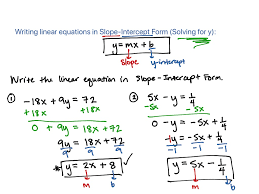 Writing linear equations in Slope-Intercept Form (Solving for y):
y = mx + b
slope y-intercept
Write the linear equation in Slope-Intercept Form
① -18x + 9y = 72
+18x +18x
0 + 9y = 18x + 72
9y = 18x + 72
9 9 9
y = 2x + 8
m b
② 5x - y = 1/4
-5x -5x
0 - y = -5x + 1/4
-y = -5x + 1/4
-1 -1 -1
y = 5x - 1/4
m b